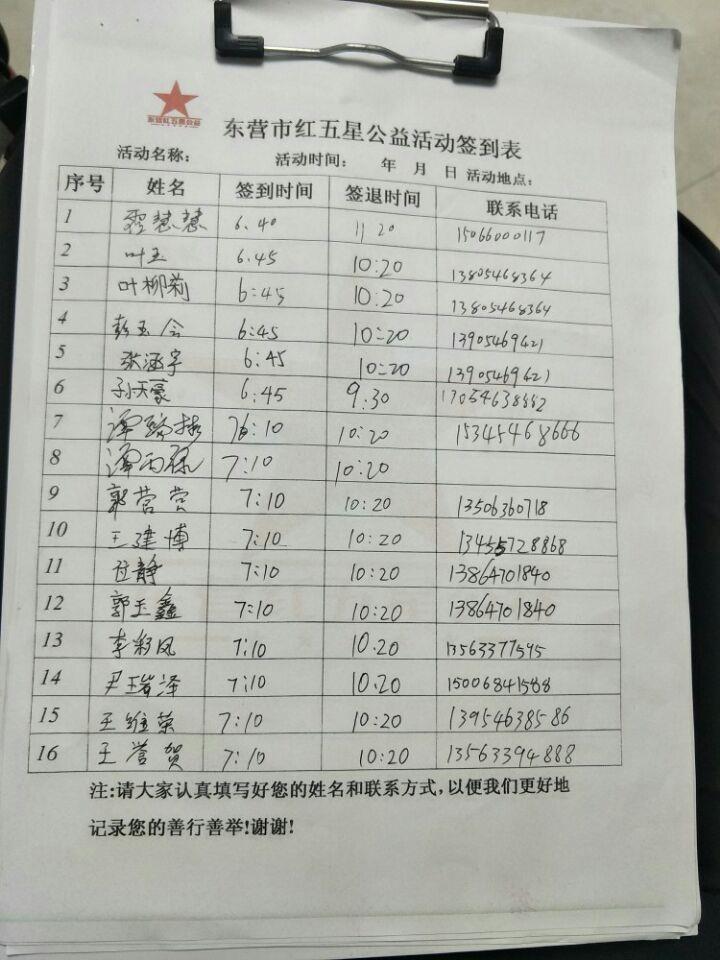 东营红五星公益
东营市红五星公益活动签到表
活动名称： 活动时间： 年 月 日 活动地点：
序号 姓名 签到时间 签退时间 联系电话
1 慧慧 6.40 11 20 15066000117
2 叶玉 6.45 10:20 13805468364
3 叶柳莉 6:45 10:20 13805468364
4 彭玉会 6:45 10:20 13905469621
5 张涵宇 6:45 10:20 13905469621
6 孙天豪 6.45 9.30 17054638882
7 谭 10:20 15345468666
8 谭雨 7:10 10:20
9 郭营营 7:10 10:20 13506360718
10 王建博 7:10 10:20 13455728868
11 静 7:10 10:20 13864701840
12 郭玉鑫 7:10 10:20 13864701840
13 李彩凤 7:10 10.20 13563377595
14 尹瑞泽 7:10 10.20 15006841588
15 王维荣 7:10 10:20 13954638586
16 王誉贺 7:10 10:20 13563394888
注:请大家认真填写好您的姓名和联系方式,以便我们更好地
记录您的善行善举!谢谢!